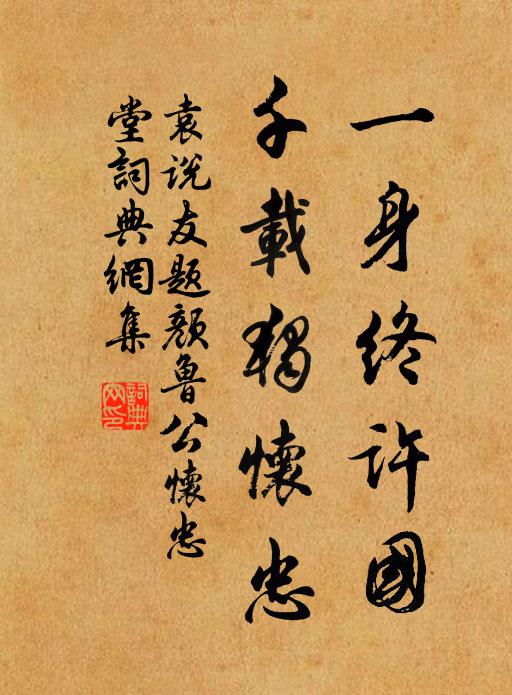 一身終許國
千載獨懷忠
袁說友題顏魯公懷忠
堂詞典網集
詞典
网印